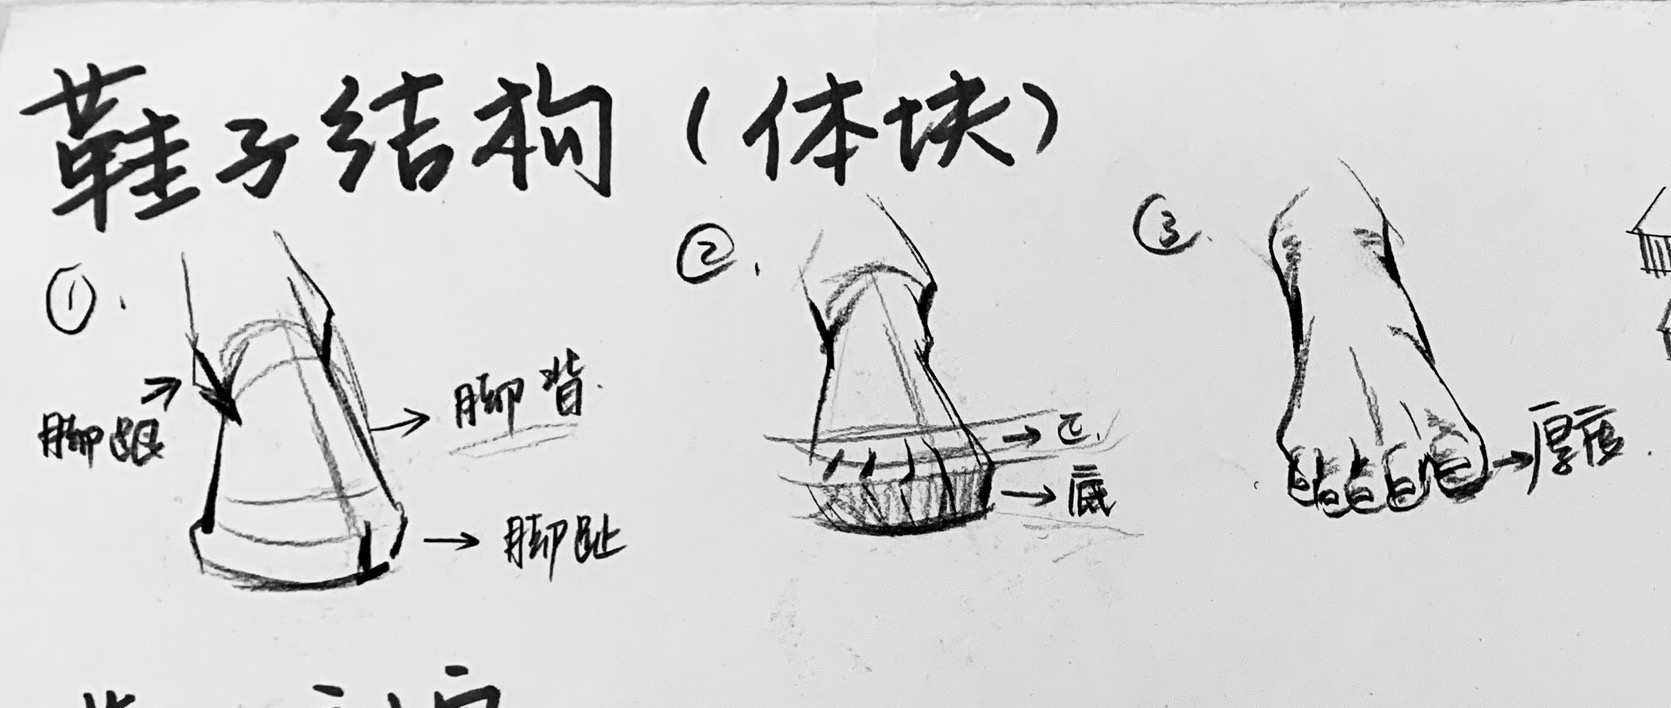 鞋子结构（体块）
①.
②.
③.
脚跟
脚背.
脚趾
底
厚度.